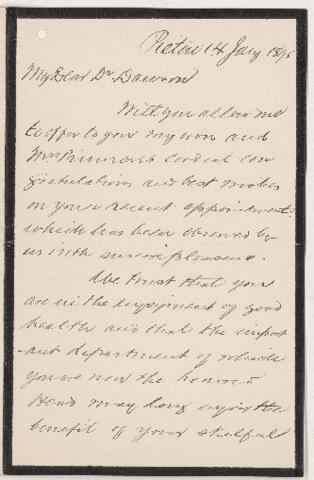 Pictou 14 Jany 1895
My Dear Dr Dawson
Will you allow me
to offer to you my own and
Mrs Primrose's cordial con
gratulations and best wishes
on your recent appointment
which has been observed by
us with sincere pleasure.
We trust that you
are in the enjoyment of good
health and that the import
ant department of which
you are now the honored
Head may long enjoy the
benefit of your skilful